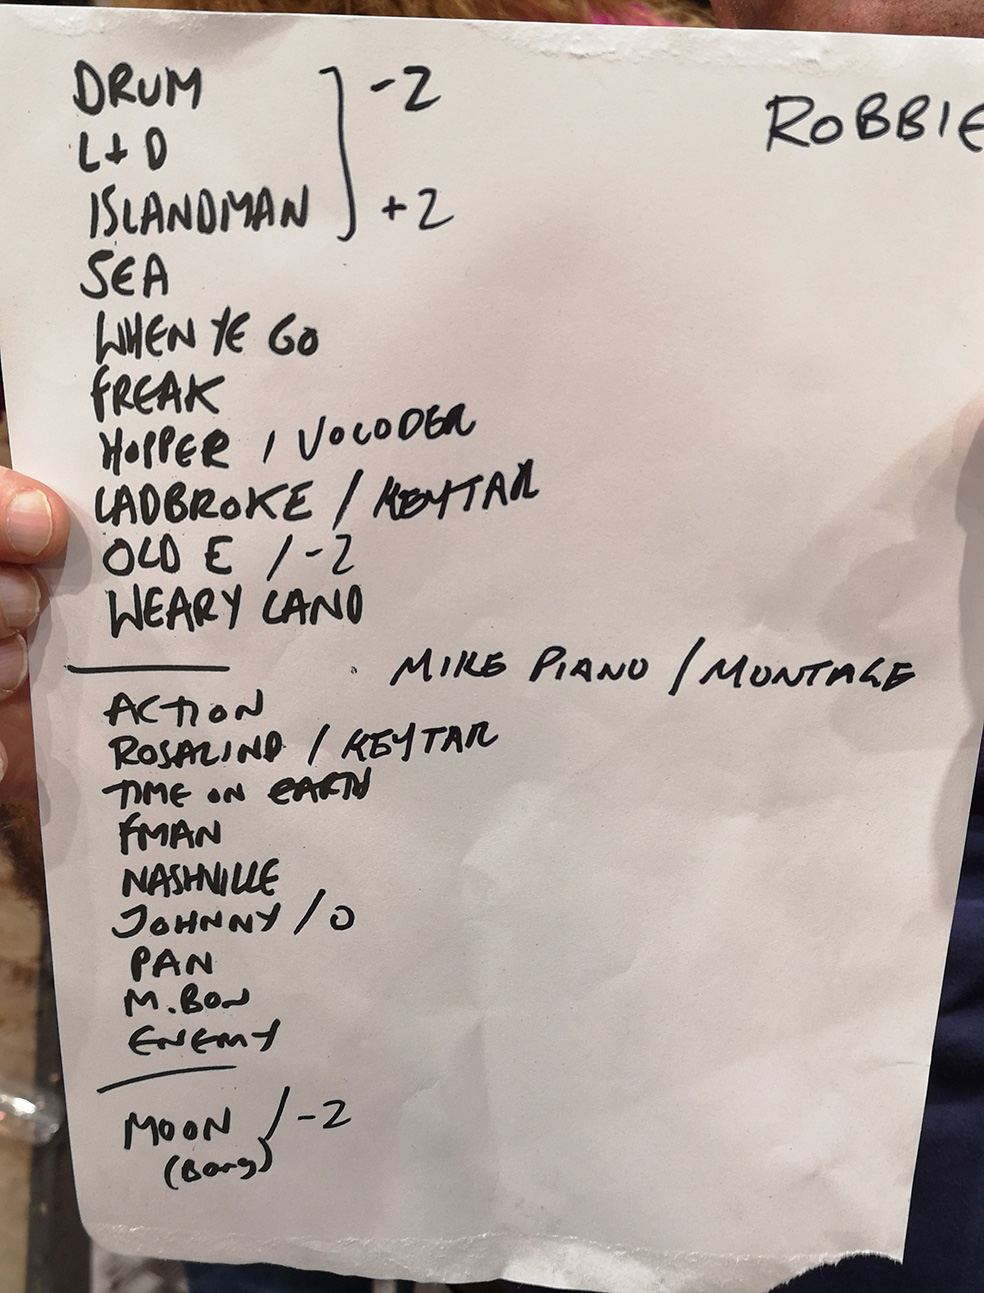 DRUM -2
ROBBIE
L+D
ISLANDMAN +2
SEA
WHEN YE GO
FREAK
HOPPER / VOCODER
LADBROKE / KEYTAR
OLD E / -2
WEARY LAND
MIKE PIANO / MONTAGE
ACTION
ROSALIND / KEYTAR
TIME ON EARTH
FMAN
NASHVILLE
JOHNNY / O
PAN
M.BON
ENEMY
MOON / -2
(Bang)